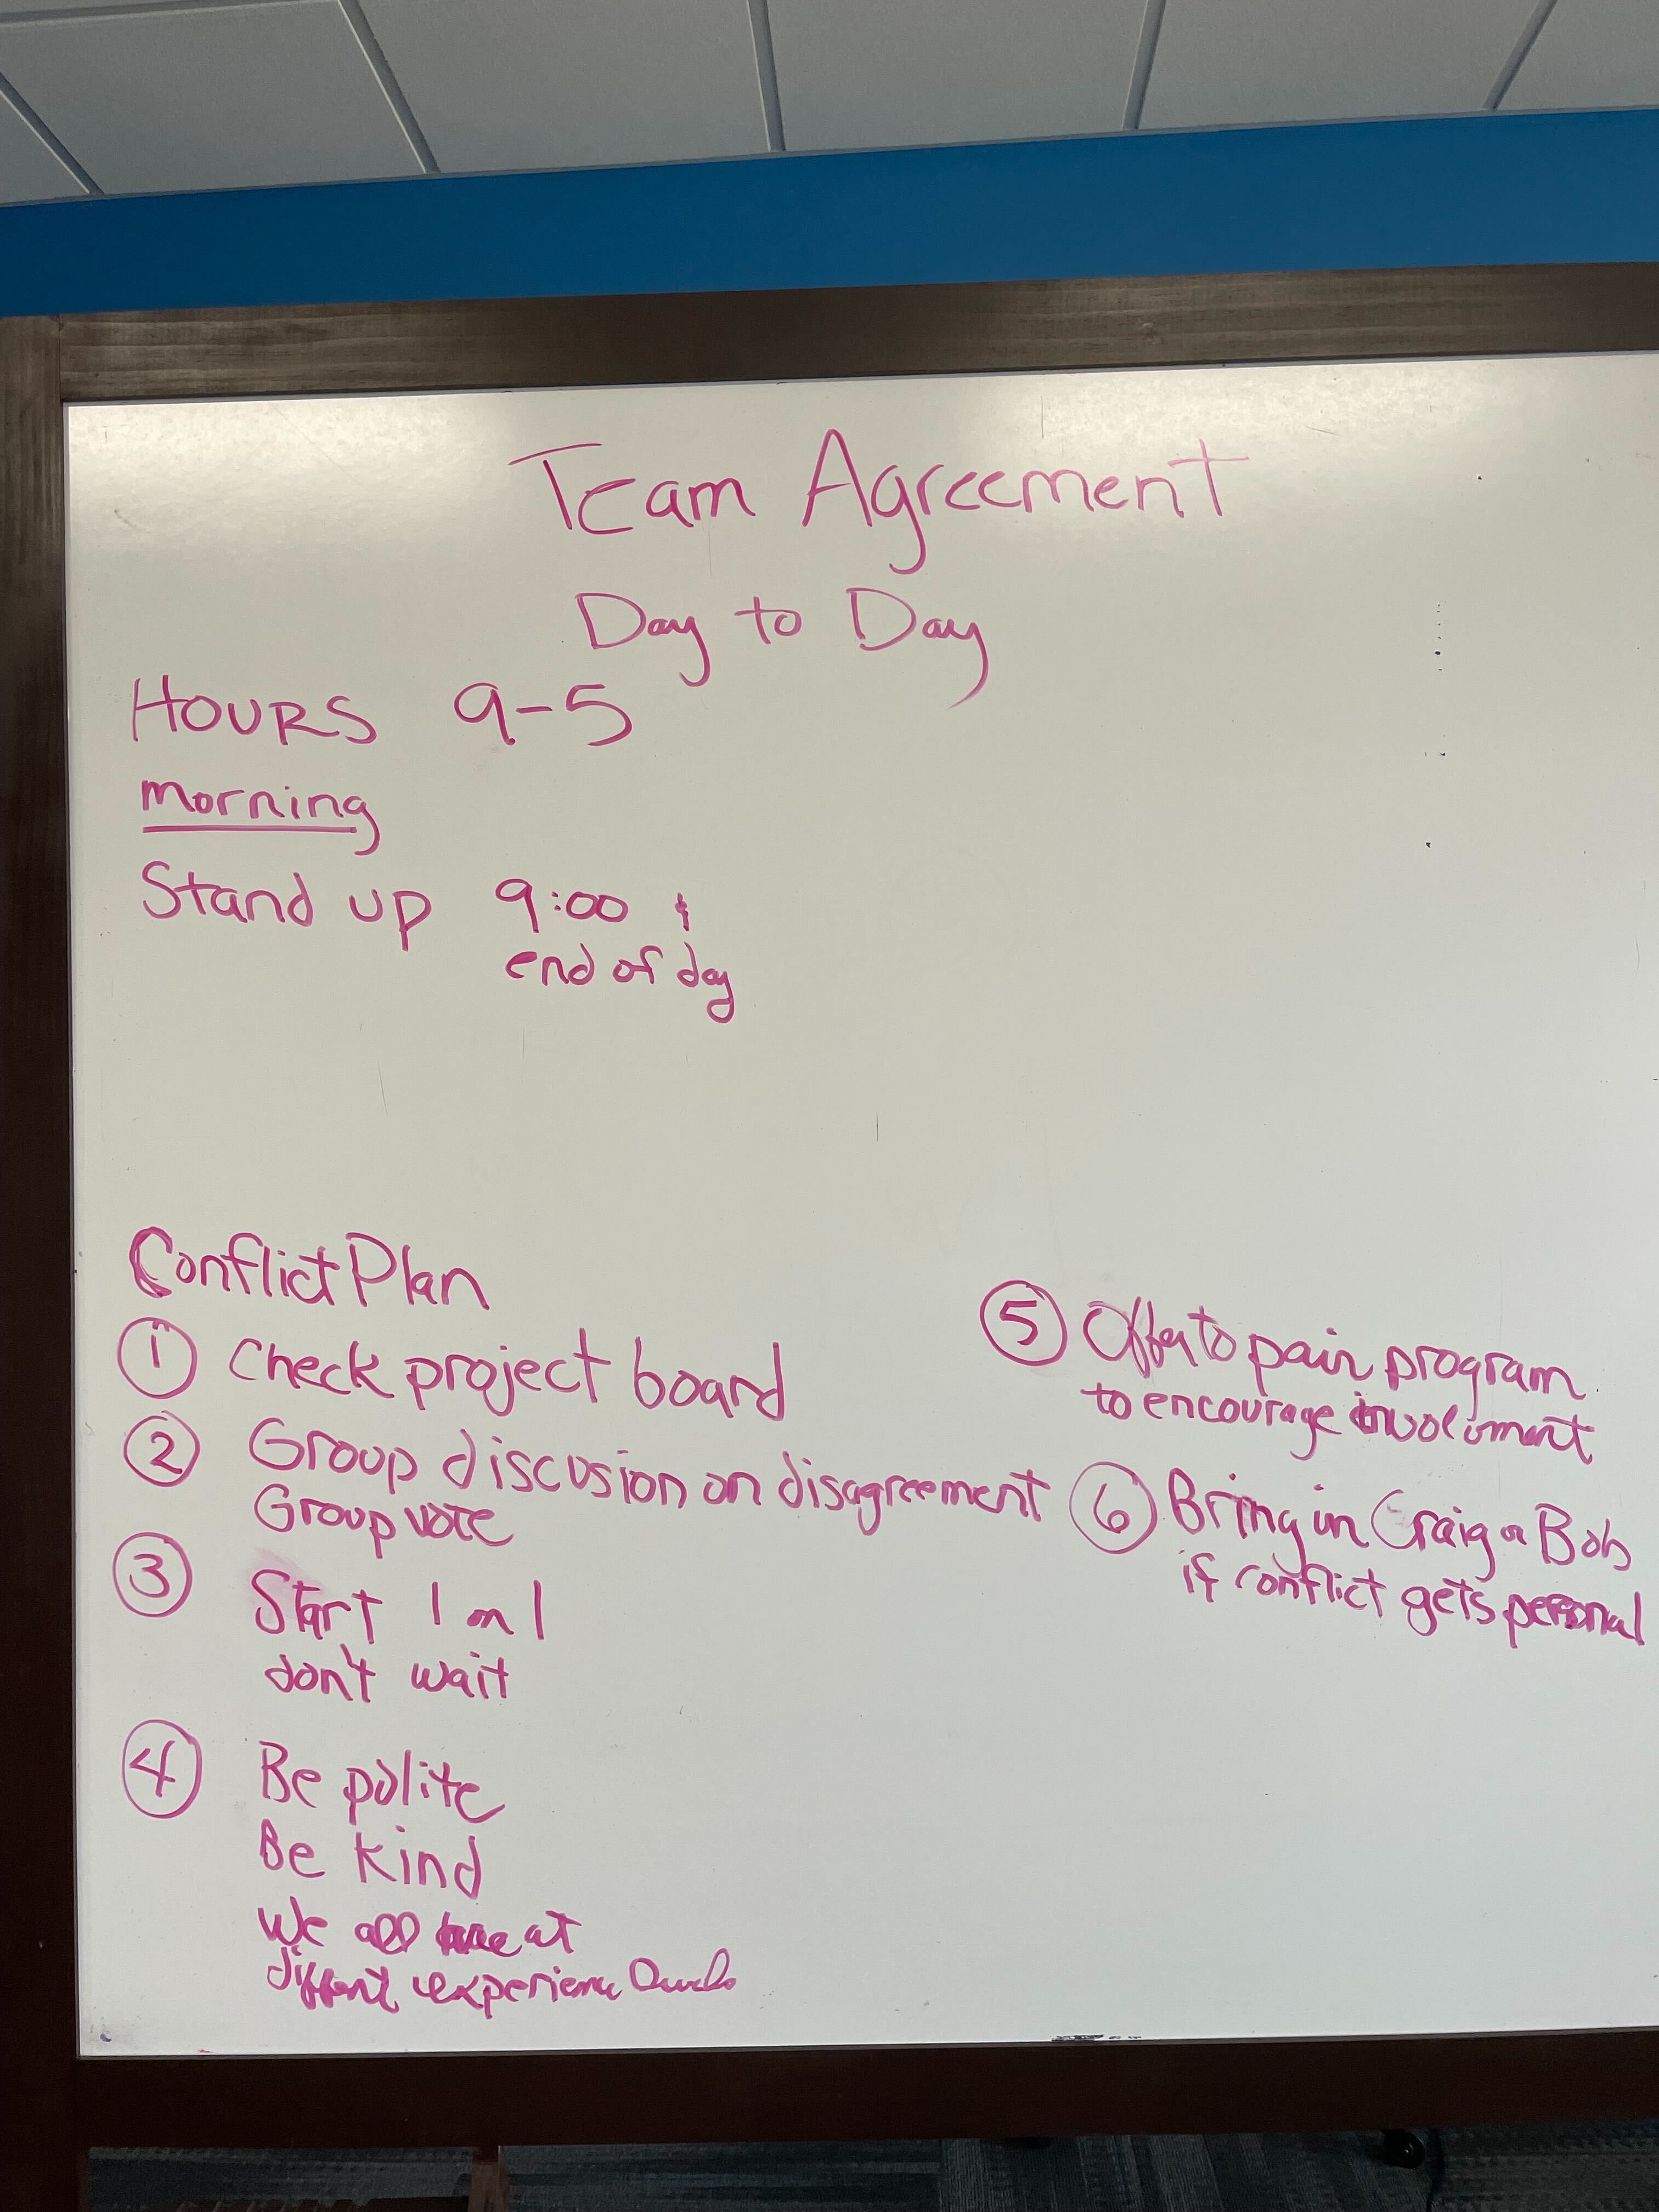 Team Agreement
Day to Day
HOURS 9-5
morning
Stand up 9:00 &
end of day
Conflict Plan
① Check project board
② Group discusion on disagreement
Group vote
③ Start 1 on 1
don't wait
④ Be polite
Be kind
We all are at
diffent experience
⑤ Offer to pair program
to encourage involvment
⑥ Bring in Craig or Bob
if conflict gets personal